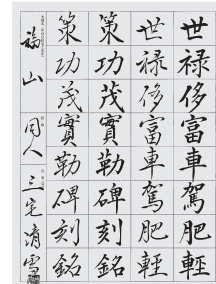 世禄侈富車駕肥輕
世禄侈富車駕肥輕
策功茂實勒碑刻銘
策功茂實勒碑刻銘
福山
同人
三宅清雪